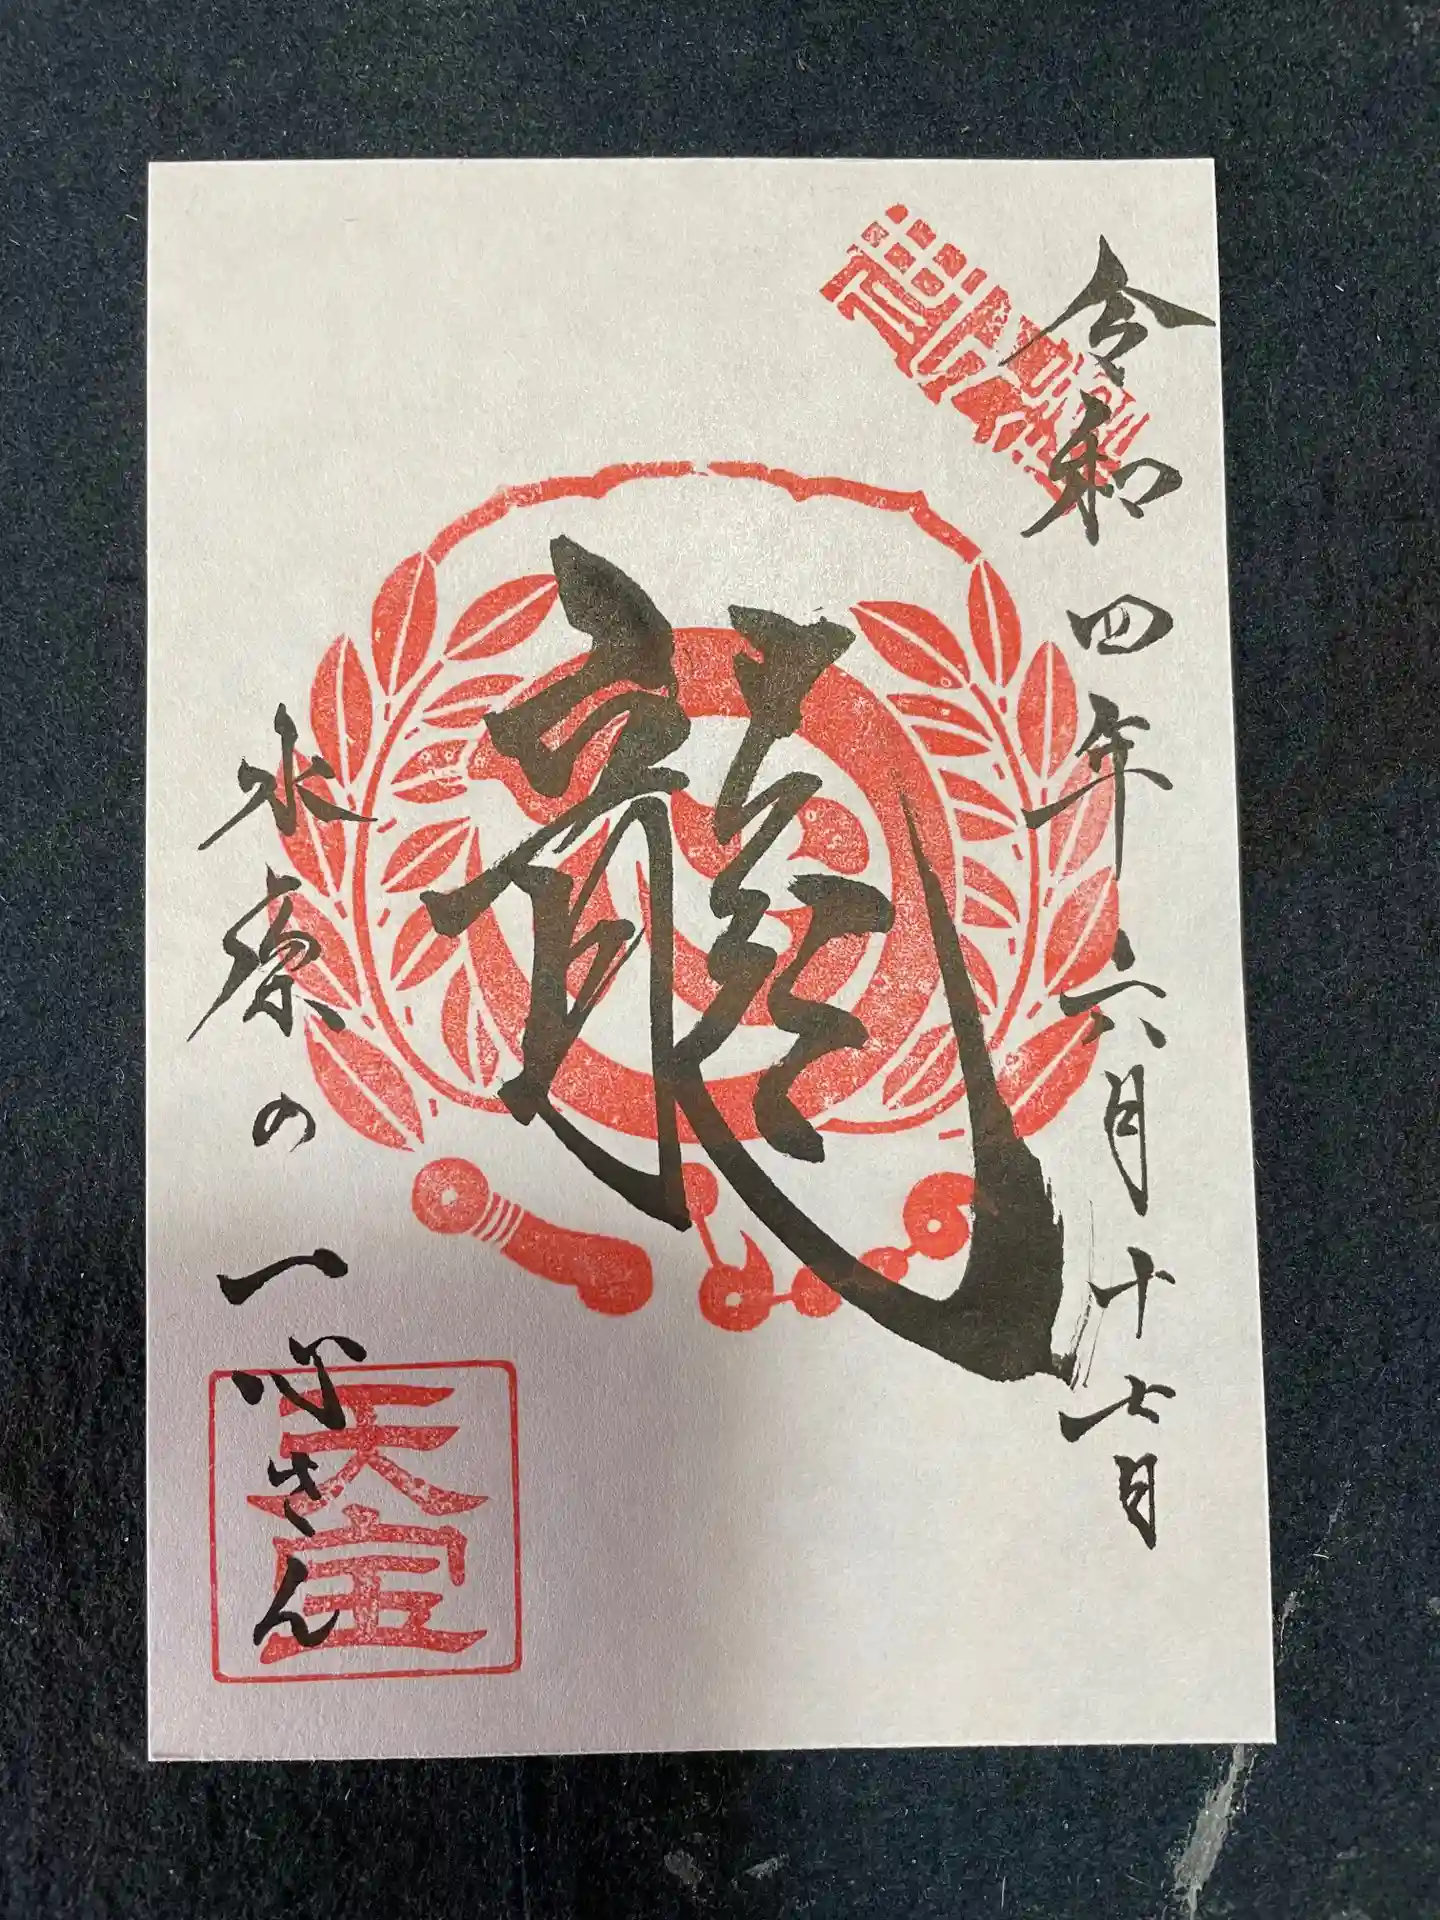 令和四年六月十七日
龍
水 の一 さん
天宝